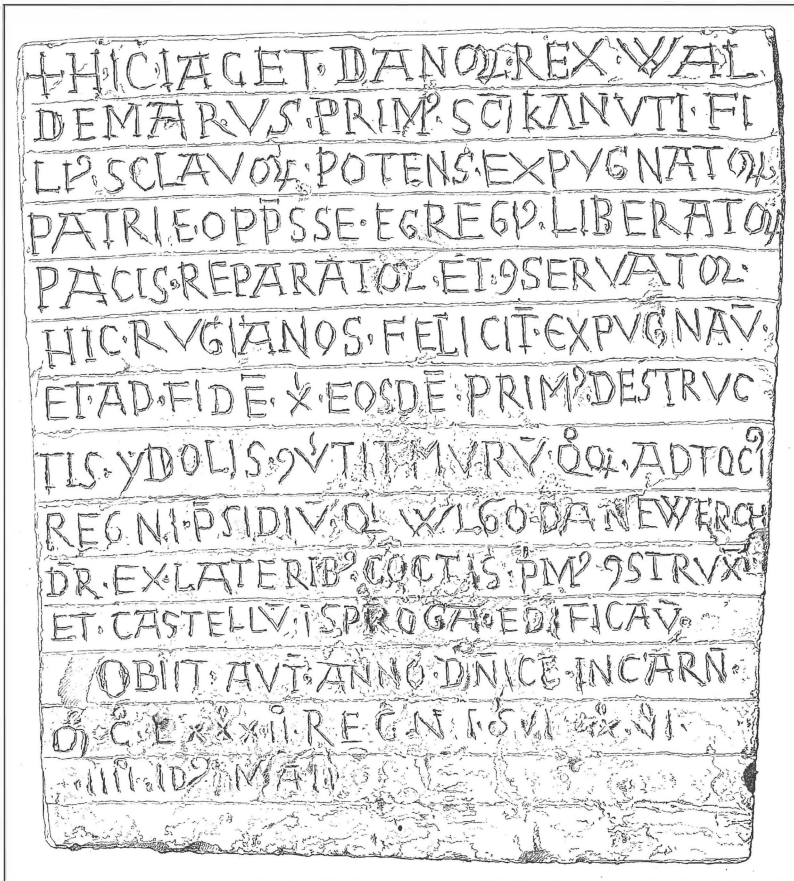 + HIC IACET · DANOꝜ · REX · WAL
DEMARVS · PRIMꝰ · SC̄I KANVTI · FI
LIꝰ · SCLAVOꝜ · POTENS · EXPVGNATOR
PATRIE · OPP̄SSE · EGREGIꝰ · LIBERATOR
PACIS · REPARATOR · ET · ꝯSERVATOR ·
HIC · RVGIANOS · FELICIT̄ · EXPVGNAV̄ ·
ET · AD · FIDĒ · X̄ · EOSDĒ · PRIMꝰ · DESTRVC
TIS · YDOLIS · ꝯV̄TIT MVRV̄ · QͦQꝫ · AD TOCꝰI
REGNI · P̄SIDIV̄ · Q WLGO · DANEWERCH
DR̄ · EX · LATERIBꝰ · COCTIS · PͥMꝰ · ꝯSTRVXIT
ET · CASTELLV̄ · I SPROGA · EDIFICAV̄ ·
OBIIT · AVT̄ · ANNO · DN̄ICE · INCARN̄ ·
Mͦ · Cͦ · LXXXII · REGNI · SVI · XX · VI ·
· IIII · IDꝰ · MAII